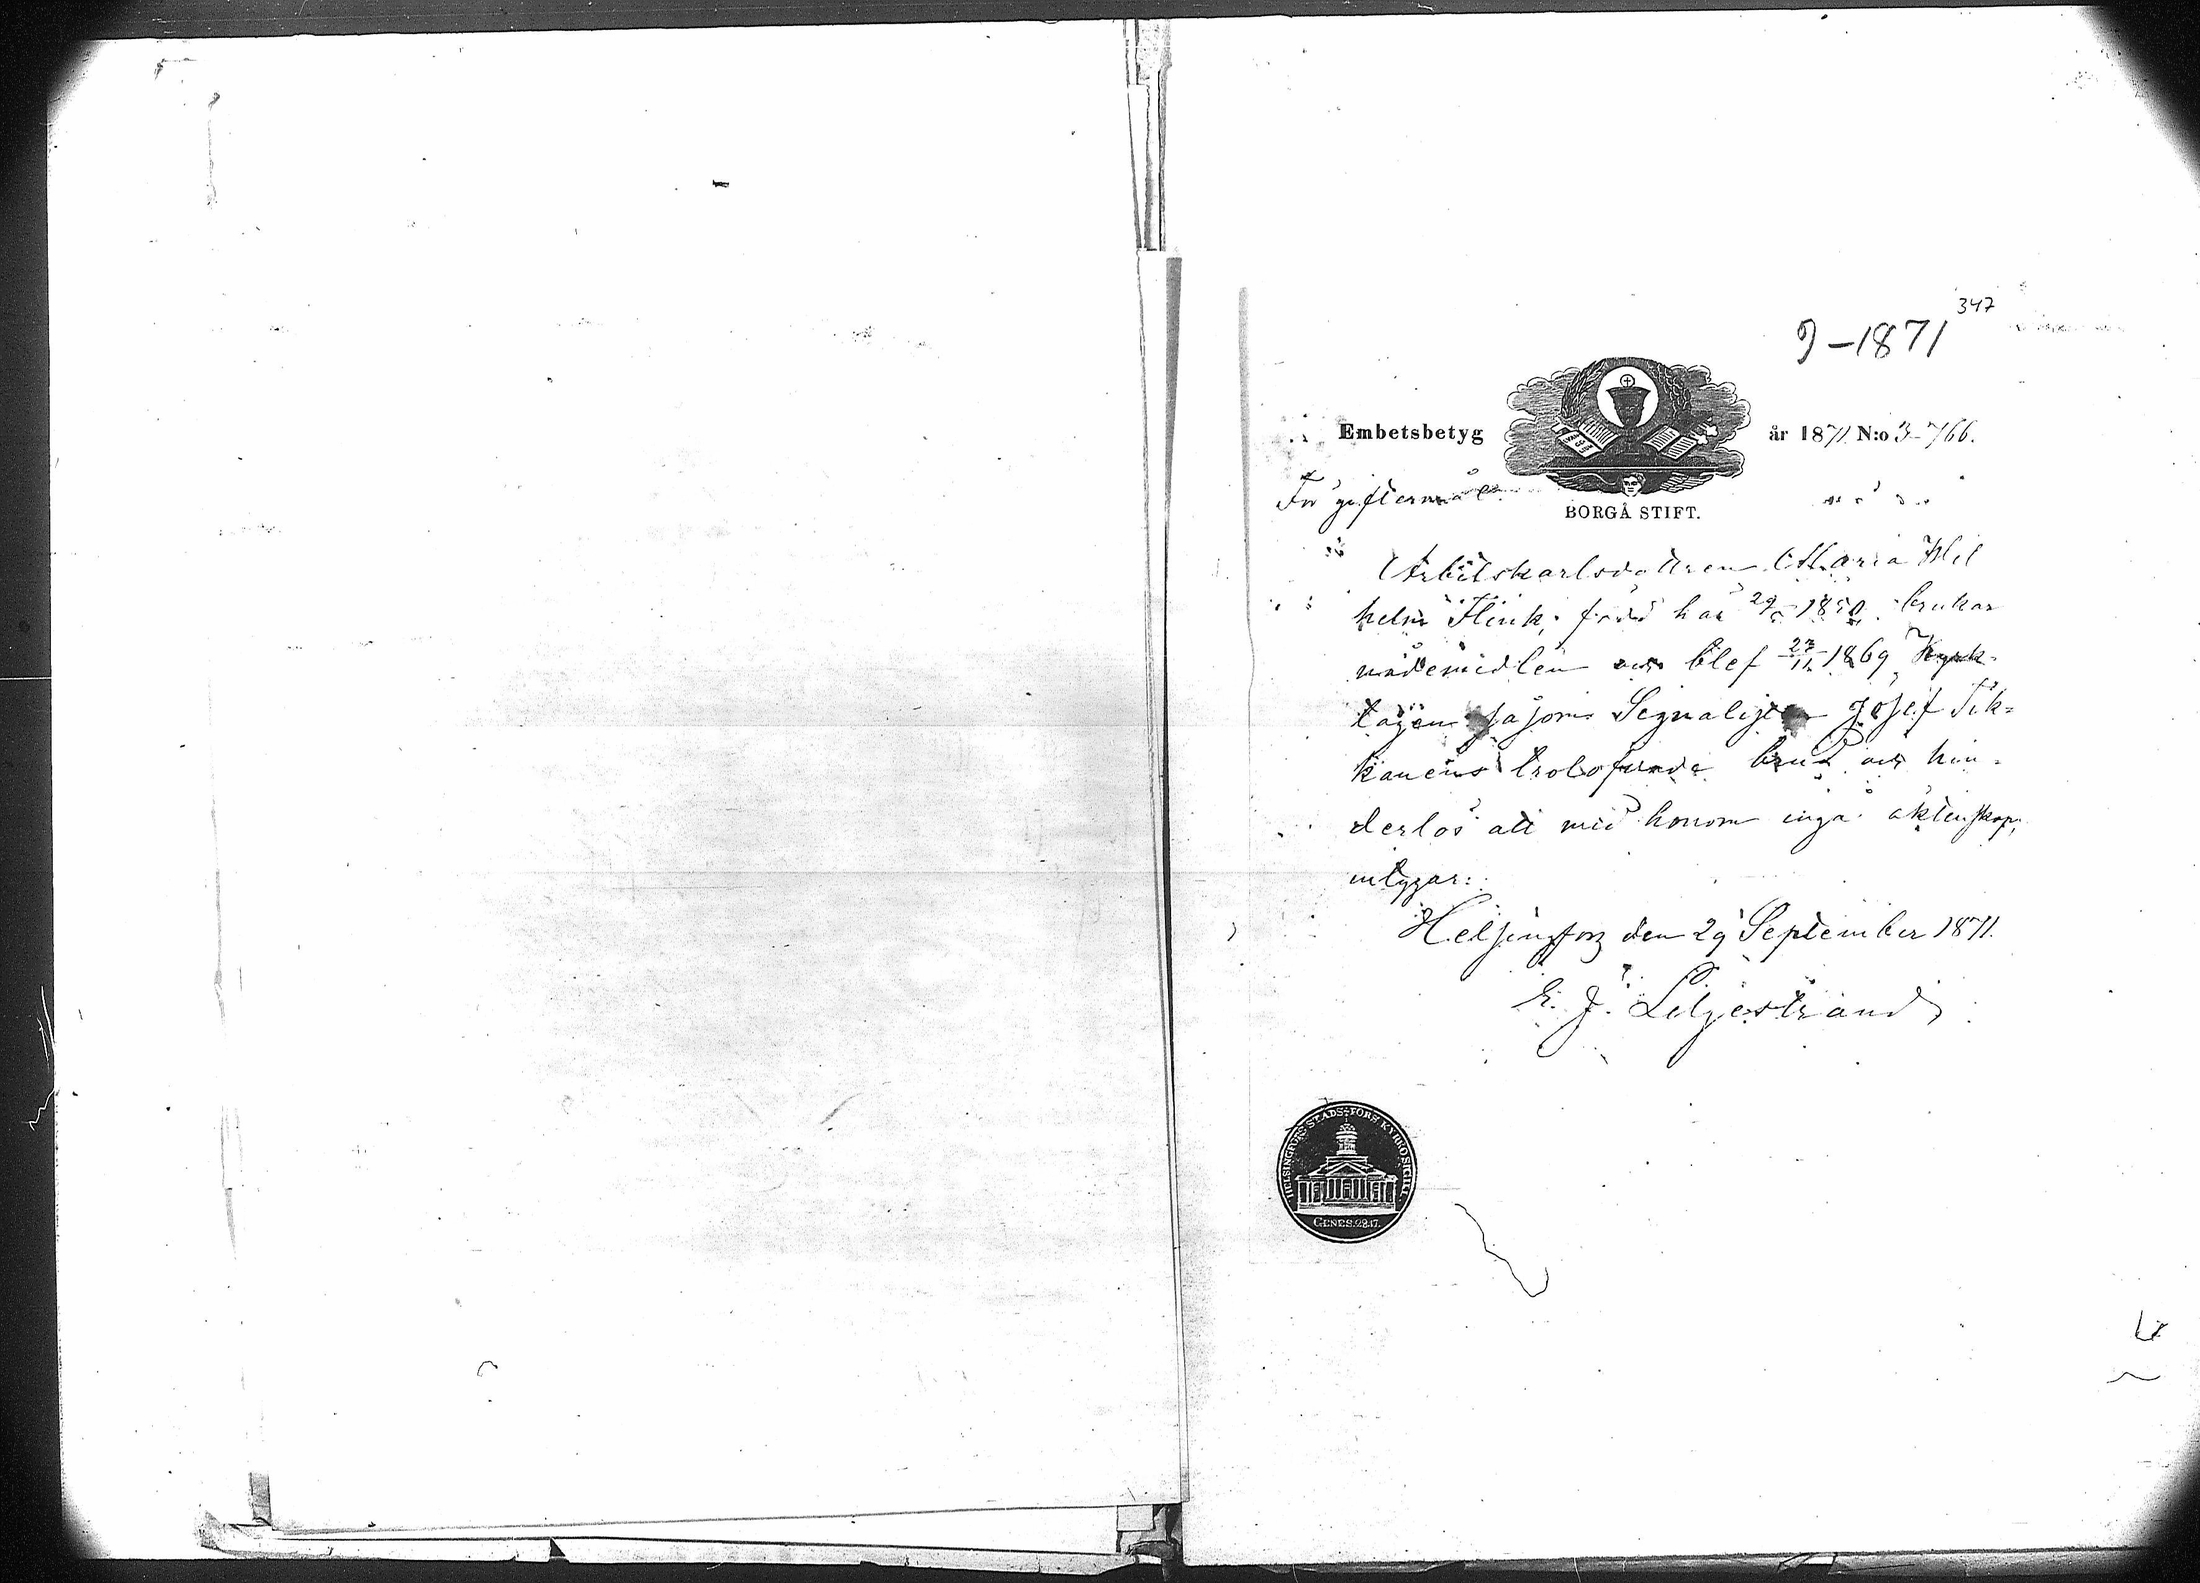 347
9-1871
Embetsbetyg år 1871 N:o 3-766.
För giftermål
BORGÅ STIFT.
Arbetskarlsdottren Maria Wil
helm Flink, född här 29 1850 brukar
nådemedlen och blef 23/11 1869 Kyrk-
tagen såsom Signalisten Josef Tik=
kanens trolofvade brud och hin=
derlös att med honom ingå äktenskap,
intygar:
Helsingfors den 29 September 1871.
E. J. Liljestrand
HELSINGFORS STADS FÖRS. KYRKO SIGILL
GENES. 28.17.